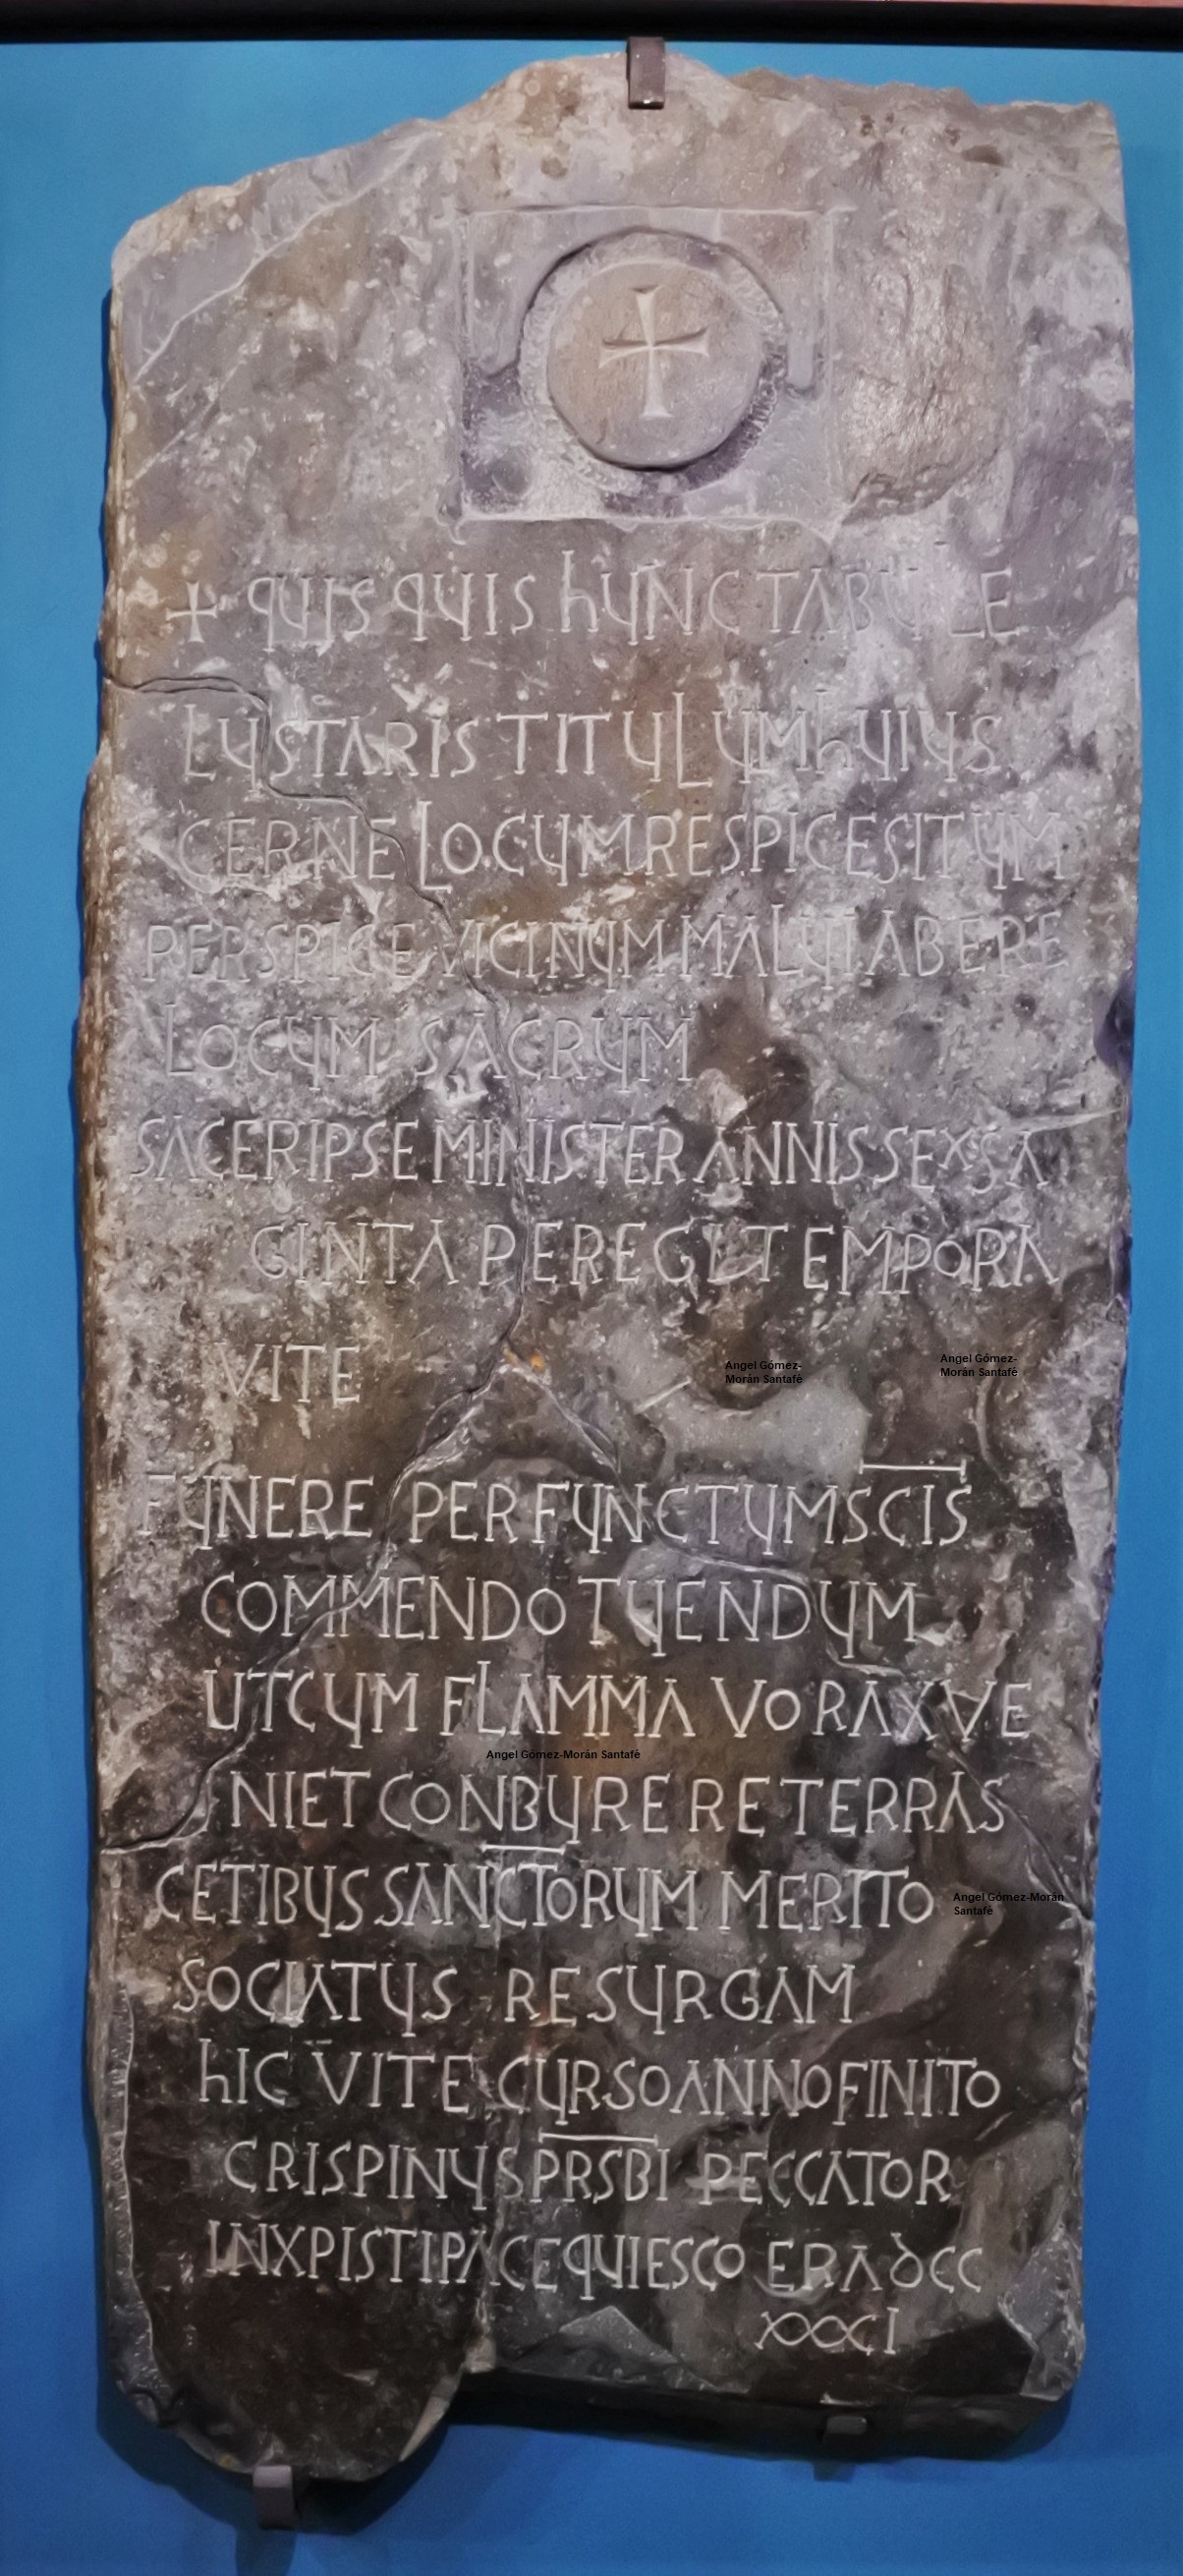 + QUISQUIS HUNC TABULE
LUSTARIS TITULUM HUIUS
CERNE LOCUM RESPICE SITUM
PERSPICE VICINUM MALUI ABERE
LOCUM SACRUM
SACER IPSE MINISTER ANNIS SEXSA
GINTA PEREGI TEMPORA
VITE
FUNERE PERFUNCTUM SCIS
COMMENDO TUENDUM
UT CUM FLAMMA VORAX VE
NIET CONBURERE TERRAS
CETIBUS SANCTORUM MERITO
SOCIATUS RESURGAM
HIC VITE CURSO ANNO FINITO
CRISPINUS PRSBI PECCATOR
IN XPISTI PACE QUIESCO ERA DCC
XXXCI
Angel Gómez-
Morán Santafé
Angel Gómez-
Morán Santafé
Angel Gómez-Morán Santafé
Angel Gómez-Morán
Santafé